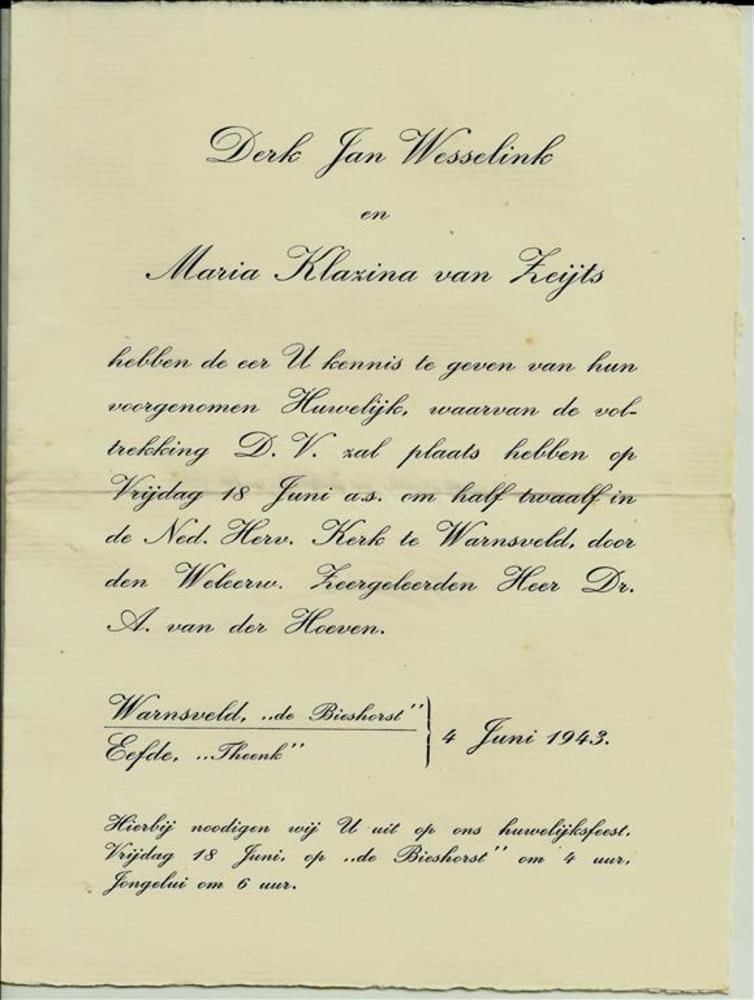 Derk Jan Wesselink
en
Maria Klazina van Zeijts
hebben de eer U kennis te geven van hun
voorgenomen Huwelijk, waarvan de vol-
trekking D. V. zal plaats hebben op
Vrijdag 18 Juni a.s. om half twaalf in
de Ned. Herv. Kerk te Warnsveld, door
den Weleerw. Zeergeleerden Heer Dr.
A. van der Hoeven.
Warnsveld, „de Bieshorst”
Eefde, „Theenk”
4 Juni 1943.
Hierbij noodigen wij U uit op ons huwelijksfeest.
Vrijdag 18 Juni, op „de Bieshorst” om 4 uur,
Jongelui om 6 uur.